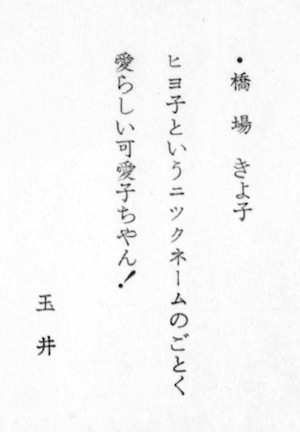 ・橋場 きよ子
ヒヨ子というニックネームのごとく
愛らしい可愛子ちやん！
玉井